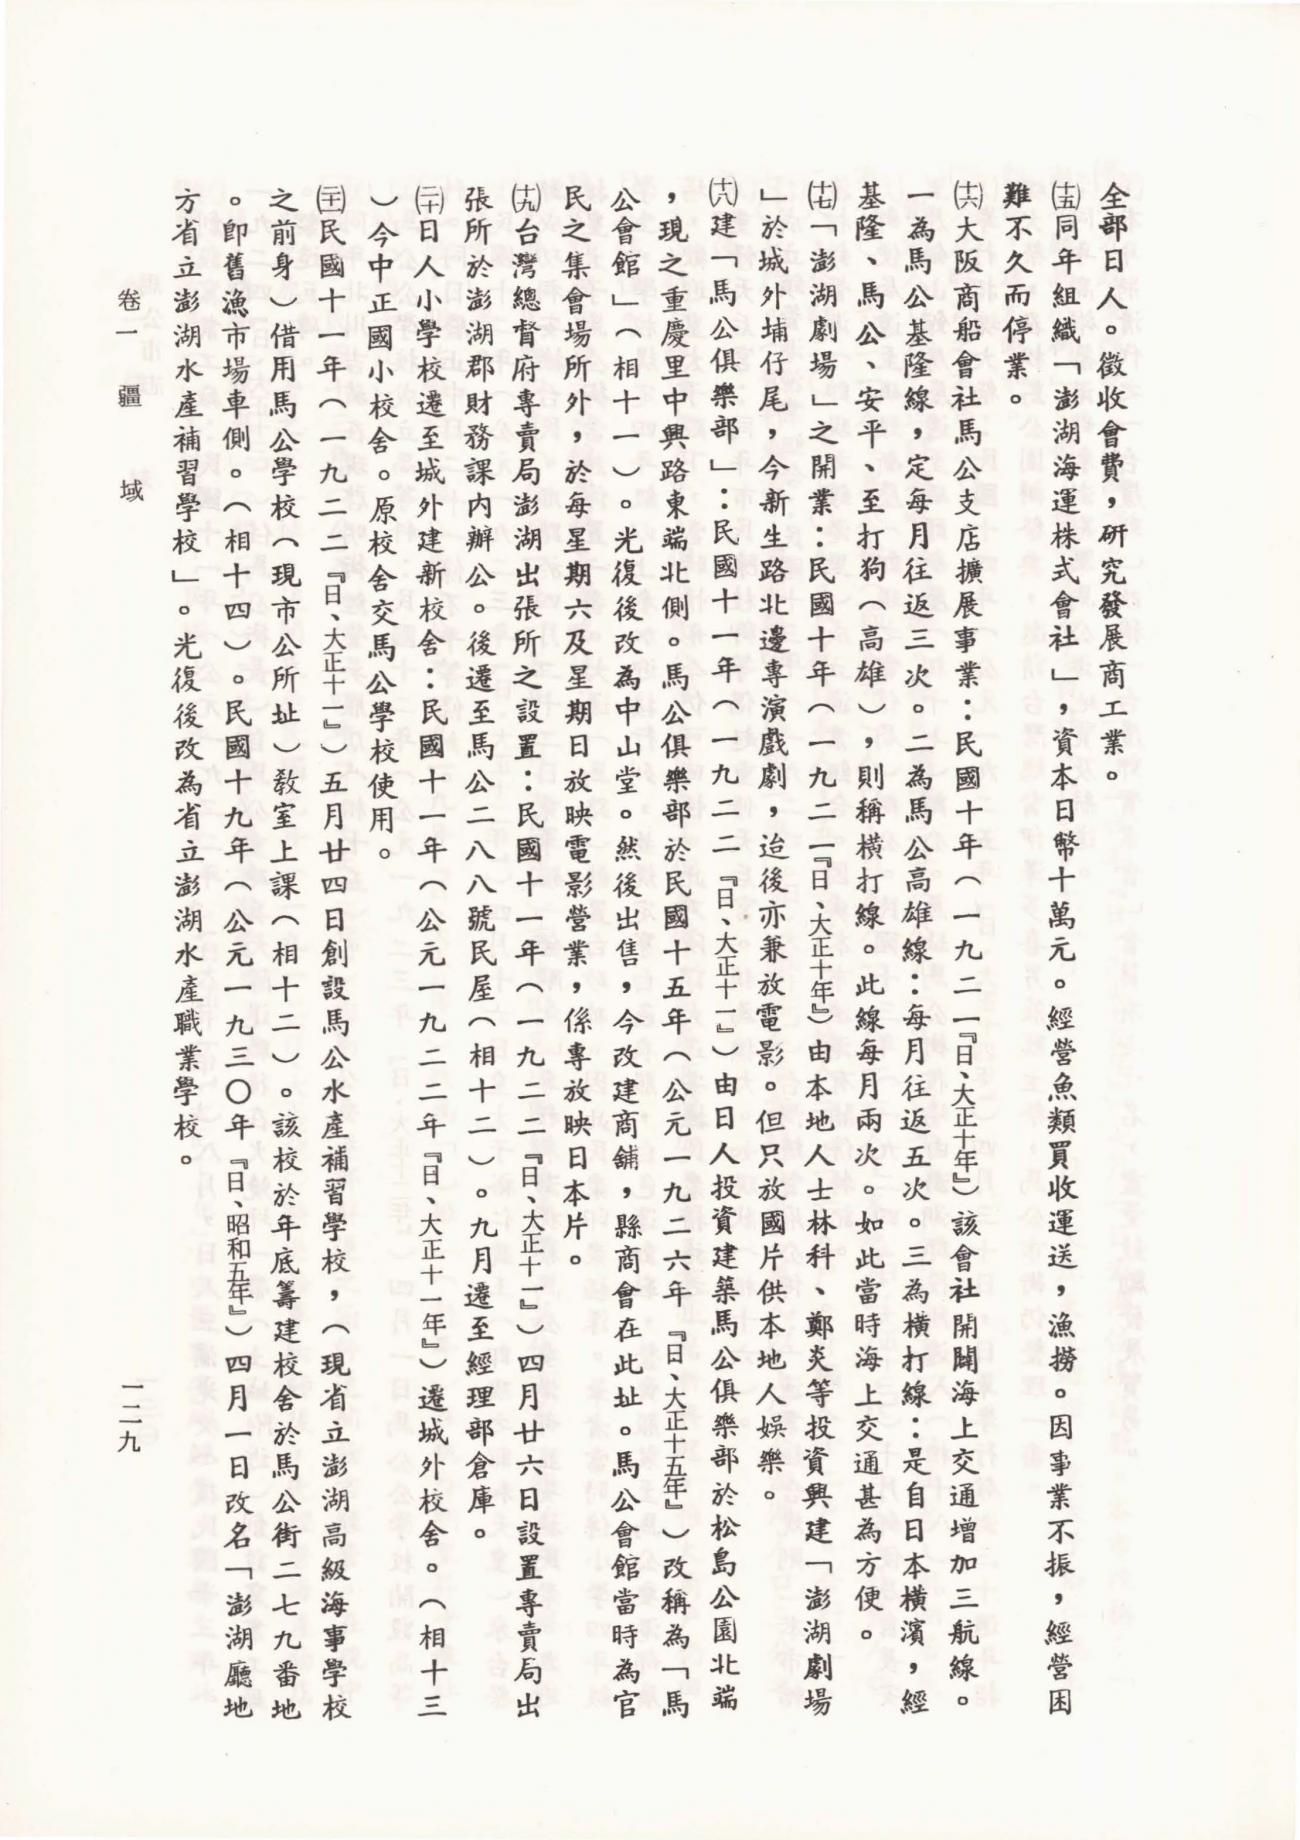 全部日人。徵收會費，研究發展商工業。
㈩五同年組織「澎湖海運株式會社」，資本日幣十萬元。經營魚類買收運送，漁撈。因事業不振，經營困
難不久而停業。
㈩六大阪商船會社馬公支店擴展事業：民國十年（一九二一『日、大正十年』）該會社開闢海上交通增加三航線。
一為馬公基隆線，定每月往返三次。二為馬公高雄線：每月往返五次。三為橫打線：是自日本橫濱，經
基隆、馬公、安平、至打狗（高雄），則稱橫打線。此線每月兩次。如此當時海上交通甚為方便。
㈩七「澎湖劇場」之開業：民國十年（一九二一『日、大正十年』）由本地人士林科、鄭炎等投資興建「澎湖劇場
」於城外埔仔尾，今新生路北邊專演戲劇，迨後亦兼放電影。但只放國片供本地人娛樂。
㈩八建「馬公俱樂部」：民國十一年（一九二二『日、大正十一』）由日人投資建築馬公俱樂部於松島公園北端
，現之重慶里中興路東端北側。馬公俱樂部於民國十五年（公元一九二六年『日、大正十五年』）改稱為「馬
公會館」（相十一）。光復後改為中山堂。然後出售，今改建商舖，縣商會在此址。馬公會館當時為官
民之集會場所外，於每星期六及星期日放映電影營業，係專放映日本片。
㈩九台灣總督府專賣局澎湖出張所之設置：民國十一年（一九二二『日、大正十一』）四月廿六日設置專賣局出
張所於澎湖郡財務課內辦公。後遷至馬公二八八號民屋（相十二）。九月遷至經理部倉庫。
(二十)日人小學校遷至城外建新校舍：民國十一年（公元一九二二年『日、大正十一年』）遷城外校舍。（相十三
）今中正國小校舍。原校舍交馬公學校使用。
(二一)民國十一年（一九二二『日、大正十一』）五月廿四日創設馬公水產補習學校，（現省立澎湖高級海事學校
之前身）借用馬公學校（現市公所址）教室上課（相十二）。該校於年底籌建校舍於馬公街二七九番地
。卽舊漁市場車側。（相十四）。民國十九年（公元一九三〇年『日、昭和五年』）四月一日改名「澎湖廳地
方省立澎湖水產補習學校」。光復後改為省立澎湖水產職業學校。
卷一　疆　域
一二九